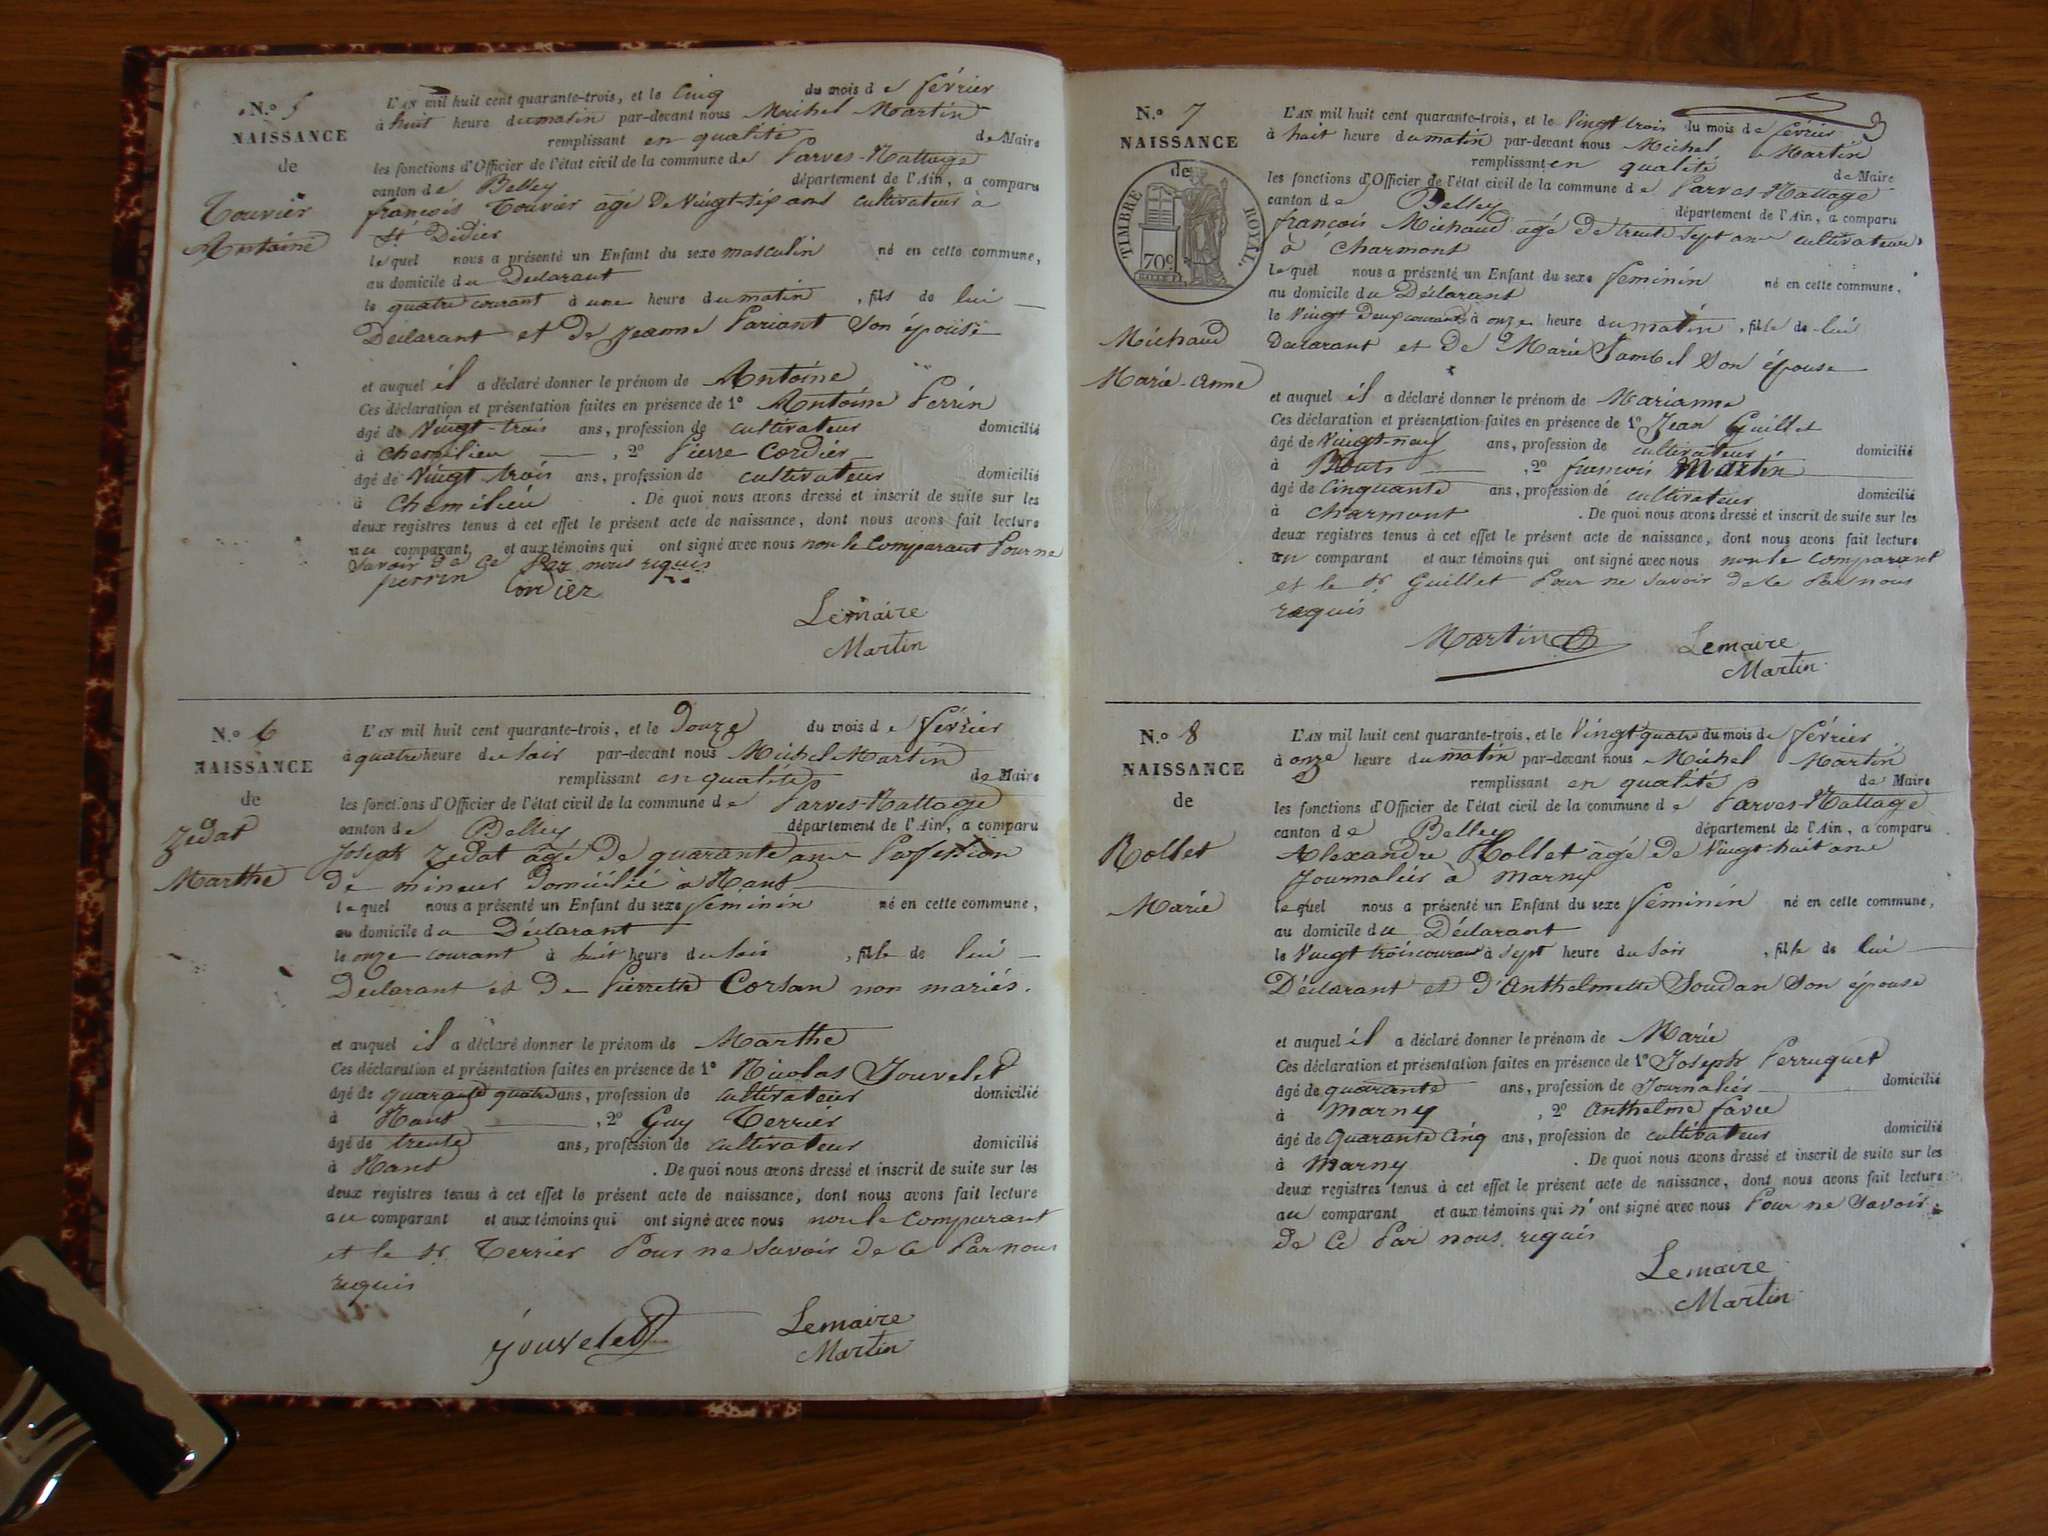 N.o 5
NAISSANCE
de
Touvier
Antoine
L'AN mil huit cent quarante-trois, et le cinq du mois de février
à huit heure du matin par-devant nous Michel Martin
remplissant en qualité de Maire
les fonctions d'Officier de l'état civil de la commune de Parves-Nattage
canton de Belley département de l'Ain, a comparu
françois Touvier agé de vingt-six ans cultivateur à
St Didier
lequel nous a présenté un Enfant du sexe masculin né en cette commune,
au domicile du Déclarant
le quatre courant à une heure du matin, fils de lui
Déclarant et de Jeanne Pariant son épouse
et auquel il a déclaré donner le prénom de Antoine
Ces déclaration et présentation faites en présence de 1o Antoine Perrin
âgé de vingt-trois ans, profession de cultivateur domicilié
à chemilieu, 2o Pierre Cordier
âgé de vingt trois ans, profession de cultivateur domicilié
à Chemilieu. De quoi nous avons dressé et inscrit de suite sur les
deux registres tenus à cet effet le présent acte de naissance, dont nous avons fait lecture
au comparant et aux témoins qui ont signé avec nous non le comparant Pour ne
savoir de ce Par nous requis
perrin Cordier
Lemaire
Martin
N.o 6
NAISSANCE
de
Zedat
Marthe
L'AN mil huit cent quarante-trois, et le Douze du mois de février
à quatre heure du soir par-devant nous Michel Martin
remplissant en qualité de Maire
les fonctions d'Officier de l'état civil de la commune de Parves-Nattage
canton de Belley département de l'Ain, a comparu
Joseph Zedat âgé de quarante ans Profession
de mineur domicilié à Nant
lequel nous a présenté un Enfant du sexe féminin né en cette commune,
au domicile du Déclarant
le onze courant à huit heure du soir, fille de lui
Déclarant et de Pierrette Corsan non mariés.
et auquel il a déclaré donner le prénom de Marthe
Ces déclaration et présentation faites en présence de 1o Nicolas Jouvelet
âgé de quarante quatre ans, profession de cultivateur domicilié
à Nant, 2o Guy Terrier
âgé de trente ans, profession de cultivateur domicilié
à Nant. De quoi nous avons dressé et inscrit de suite sur les
deux registres tenus à cet effet le présent acte de naissance, dont nous avons fait lecture
au comparant et aux témoins qui ont signé avec nous non le comparant
et le Sr Terrier Pour ne savoir de ce Par nous
requis
jouvelet
Lemaire
Martin
N.o 7
NAISSANCE
de
TIMBRE ROYAL.
70c
Michaud
Marie-anne
L'AN mil huit cent quarante-trois, et le vingt trois du mois de février
à huit heure du matin par-devant nous Michel Martin
remplissant en qualité de Maire
les fonctions d'Officier de l'état civil de la commune de Parves-Nattage
canton de Belley département de l'Ain, a comparu
françois Michaud agé de trente sept ans cultivateur
à Charmont
lequel nous a présenté un Enfant du sexe féminin né en cette commune,
au domicile du Déclarant
le vingt deux courant à onze heure du matin, fille de lui
Déclarant et de Marie Jambel son épouse
et auquel il a déclaré donner le prénom de Marianne
Ces déclaration et présentation faites en présence de 1o Jean Guillet
âgé de vingt-neuf ans, profession de cultivateur domicilié
à, 2o françois Martin
âgé de cinquante ans, profession de cultivateur domicilié
à Charmont. De quoi nous avons dressé et inscrit de suite sur les
deux registres tenus à cet effet le présent acte de naissance, dont nous avons fait lecture
au comparant et aux témoins qui ont signé avec nous non le comparant
et le Sr Guillet Pour ne savoir de ce Par nous
requis
Martin
Lemaire
Martin
N.o 8
NAISSANCE
de
Rollet
Marie
L'AN mil huit cent quarante-trois, et le vingt quatre du mois de février
à onze heure du matin par-devant nous Michel Martin
remplissant en qualité de Maire
les fonctions d'Officier de l'état civil de la commune de Parves-Nattage
canton de Belley département de l'Ain, a comparu
Alexandre Rollet âgé de vingt huit ans
Journalier à marny
lequel nous a présenté un Enfant du sexe féminin né en cette commune,
au domicile du Déclarant
le vingt trois courant à sept heure du soir, fille de lui
Déclarant et d'Anthelmette Soudan son épouse
et auquel il a déclaré donner le prénom de Marie
Ces déclaration et présentation faites en présence de 1o Joseph Perruquet
âgé de quarante ans, profession de Journalier domicilié
à marny, 2o Anthelme favre
âgé de quarante cinq ans, profession de cultivateur domicilié
à marny. De quoi nous avons dressé et inscrit de suite sur les
deux registres tenus à cet effet le présent acte de naissance, dont nous avons fait lecture
au comparant et aux témoins qui n'ont signé avec nous Pour ne savoir
de ce Par nous requis
Lemaire
Martin